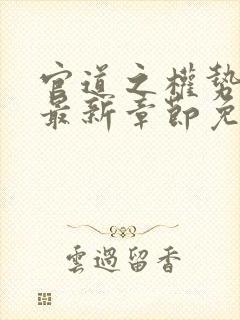 官道之權勢
最新章節免
雲過留香